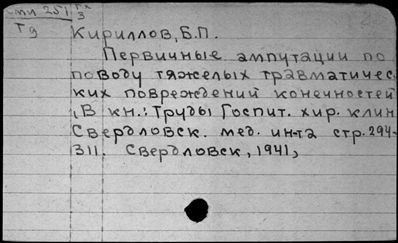 Кириллов, Б.П.
Тд
Первичные ампутации по
поводу тяжелых травматичес-
ких повреждений конечностей
, В кн.: Труды Госпит. хир. клин
Свердловск. мед. ин-та стр. 294-
311. Свердловск, 1941,